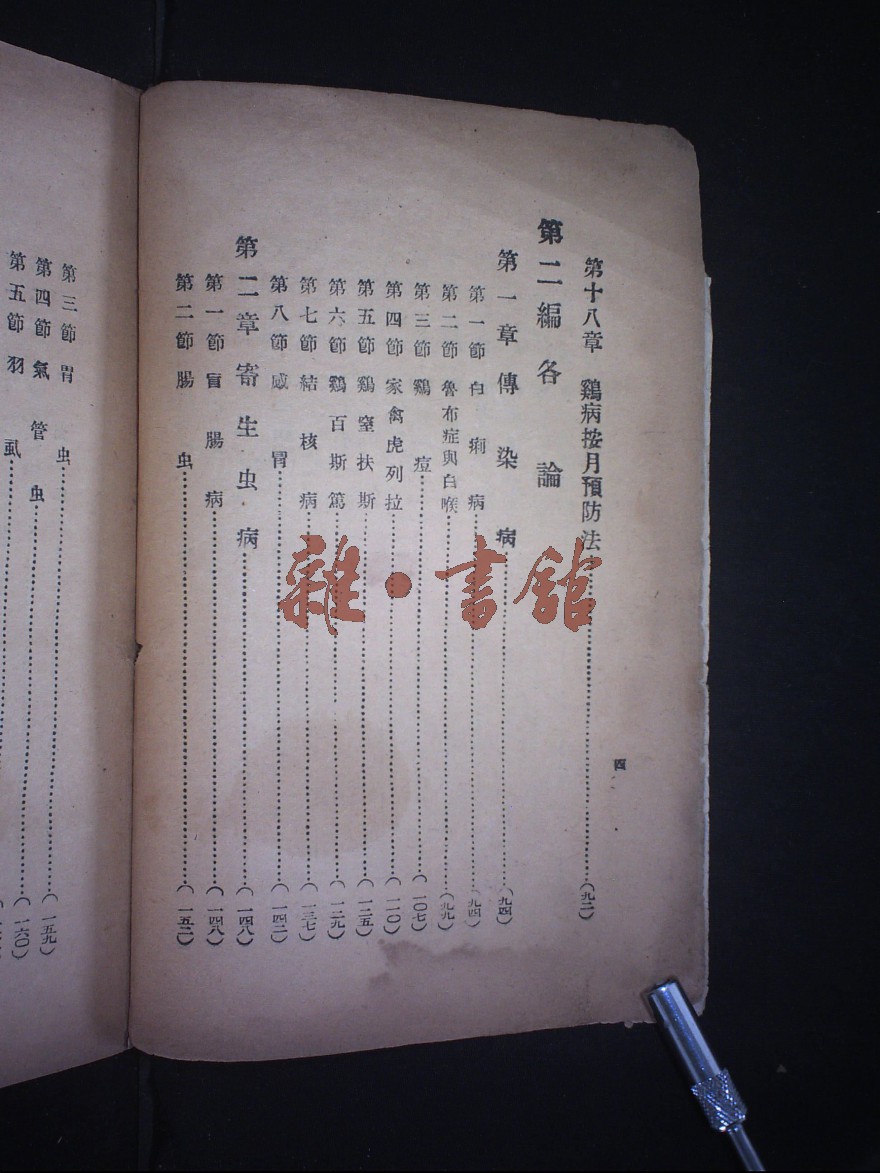 四
第十八章 鷄病按月預防法……(九二)
第二編 各論
第一章 傳染病……(九四)
第一節 白痢病……(九四)
第二節 魯布症與白喉……(九九)
第三節 鷄痘……(一〇七)
第四節 家禽虎列拉……(一一〇)
第五節 鷄窒扶斯……(一二五)
第六節 鷄百斯篤……(一二九)
第七節 結核病……(一三七)
第八節 感冒……(一四二)
第二章 寄生虫病……(一四八)
第一節 盲腸病……(一四八)
第二節 腸虫……(一五二)
第三節 胃虫……(一五九)
第四節 氣管虫……(一六〇)
第五節 羽虱……
雜·書館